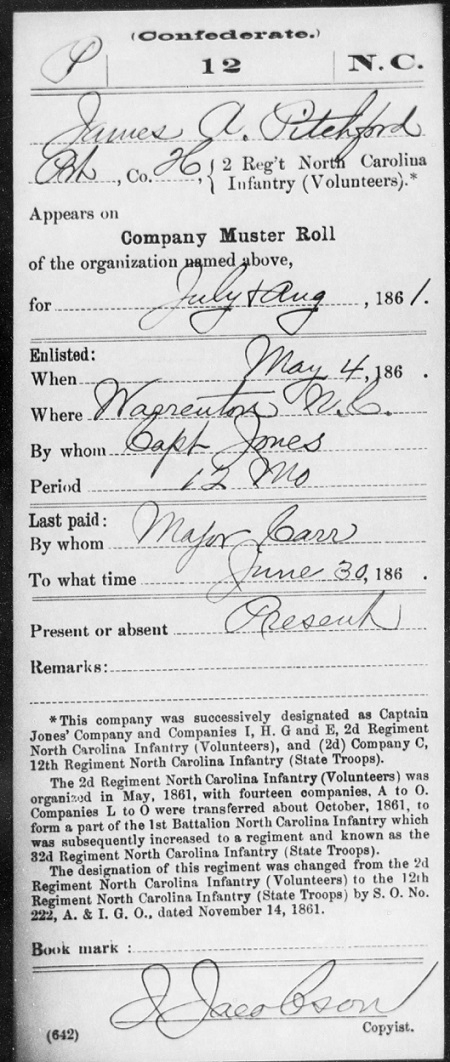 (Confederate.)
P | 12 | N. C.
James A. Pitchford
Pvt, Co. H, { 2 Reg't North Carolina
Infantry (Volunteers).*
Appears on
Company Muster Roll
of the organization named above,
for July & Aug, 1861.
Enlisted:
When May 4, 186 .
Where Warrenton N.C.
By whom Capt Jones
Period 12 Mo
Last paid:
By whom Major Carr
To what time June 30, 186 .
Present or absent Present
Remarks:
*This company was successively designated as Captain
Jones' Company and Companies I, H, G and E, 2d Regiment
North Carolina Infantry (Volunteers), and (2d) Company C,
12th Regiment North Carolina Infantry (State Troops).
The 2d Regiment North Carolina Infantry (Volunteers) was
organized in May, 1861, with fourteen companies, A to O.
Companies L to O were transferred about October, 1861, to
form a part of the 1st Battalion North Carolina Infantry which
was subsequently increased to a regiment and known as the
32d Regiment North Carolina Infantry (State Troops).
The designation of this regiment was changed from the 2d
Regiment North Carolina Infantry (Volunteers) to the 12th
Regiment North Carolina Infantry (State Troops) by S. O. No.
222, A. & I. G. O., dated November 14, 1861.
Book mark :
J Jacobson
(642) Copyist.